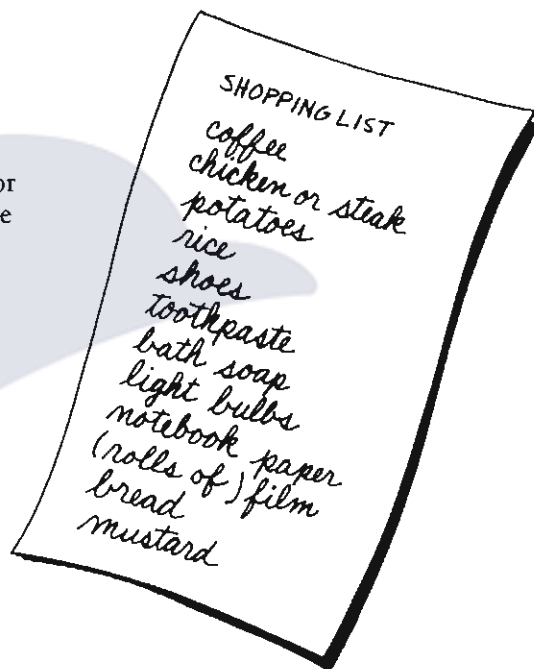 or
e
SHOPPING LIST
coffee
chicken or steak
potatoes
rice
shoes
toothpaste
bath soap
light bulbs
notebook paper
(rolls of) film
bread
mustard